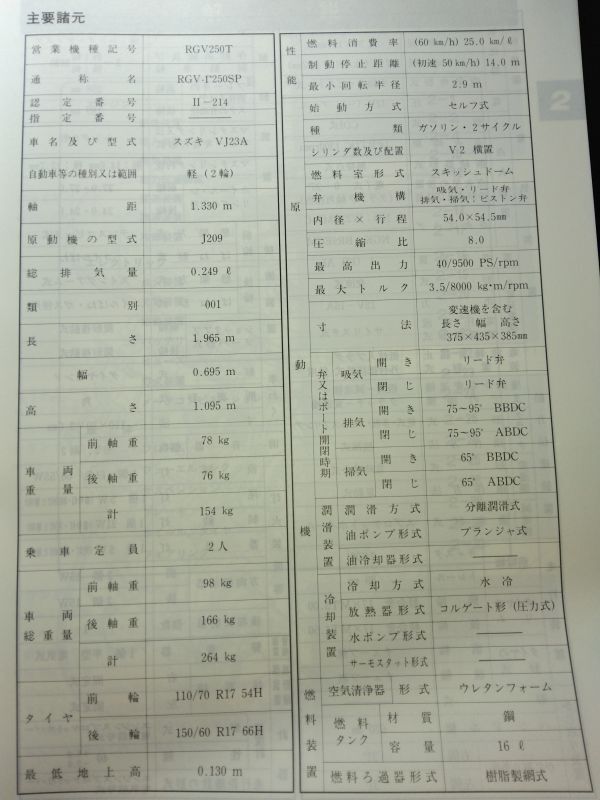 主要諸元
営業機種記号 RGV250T
通称名 RGV-Γ250SP
認定番号 II-214
指定番号 ———
車名及び型式 スズキ VJ23A
自動車等の種別又は範囲 軽(2輪)
軸距 1.330 m
原動機の型式 J209
総排気量 0.249 ℓ
類別 001
長さ 1.965 m
幅 0.695 m
高さ 1.095 m
車両重量
前軸重 78 kg
後軸重 76 kg
計 154 kg
乗車定員 2人
車両総重量
前軸重 98 kg
後軸重 166 kg
計 264 kg
タイヤ
前輪 110/70 R17 54H
後輪 150/60 R17 66H
最低地上高 0.130 m
性能
燃料消費率 (60 km/h) 25.0 km/ℓ
制動停止距離 (初速 50 km/h) 14.0 m
最小回転半径 2.9 m
原動機
始動方式 セルフ式
種類 ガソリン・2サイクル
シリンダ数及び配置 V2 横置
燃料室形式 スキッシュドーム
弁機構 吸気・リード弁
排気・掃気:ピストン弁
内径×行程 54.0×54.5mm
圧縮比 8.0
最高出力 40/9500 PS/rpm
最大トルク 3.5/8000 kg·m/rpm
寸法 変速機を含む
長さ 幅 高さ
375×435×385mm
弁又はポート開閉時期
吸気 開き リード弁
閉じ リード弁
排気 開き 75~95° BBDC
閉じ 75~95° ABDC
掃気 開き 65° BBDC
閉じ 65° ABDC
潤滑装置
潤滑方式 分離潤滑式
油ポンプ形式 プランジャ式
油冷却器形式 ———
冷却装置
冷却方式 水冷
放熱器形式 コルゲート形(圧力式)
水ポンプ形式 ———
サーモスタット形式 ———
燃料装置
空気清浄器形式 ウレタンフォーム
燃料タンク
材質 鋼
容量 16 ℓ
燃料ろ過器形式 樹脂製網式
2